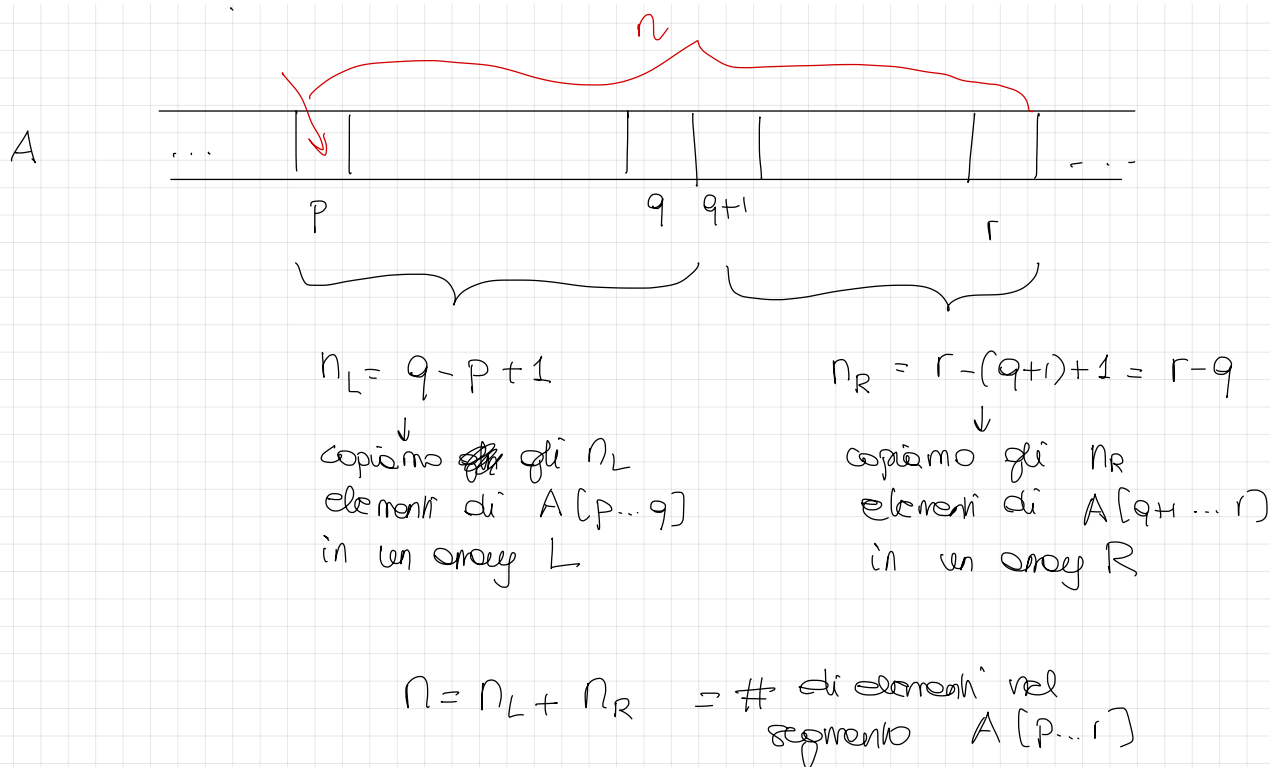 n
A ... ...
p q q+1 r
n_L = q - p + 1
n_R = r - (q+1) + 1 = r - q
↓
copiamo gli n_L
elementi di A [p...q]
in un array L
↓
copiamo gli n_R
elementi di A [q+1 ... r]
in un array R
n = n_L + n_R = # di elementi nel
segmento A [p...r]